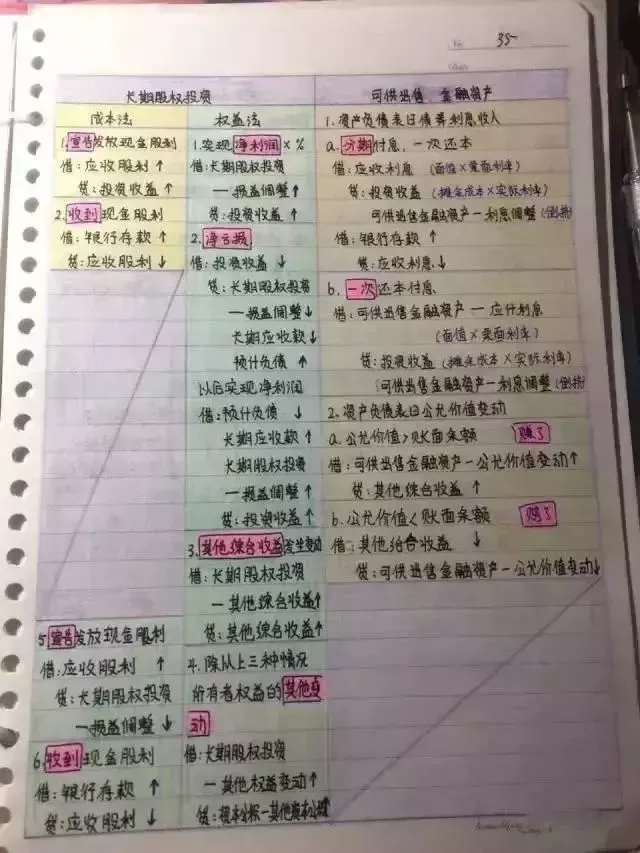 No 35
Date
长期股权投资
可供出售金融资产
成本法
1.宣告发放现金股利
借:应收股利↑
贷:投资收益↑
2.收到现金股利
借:银行存款↑
贷:应收股利↓
权益法
1.实现净利润×%
借:长期股权投资
—损益调整↑
贷:投资收益↑
2.净亏损
借:投资收益↓
贷:长期股权投资
—损益调整↓
长期应收款↓
预计负债↑
以后实现净利润
借:预计负债↓
长期应收款↑
长期股权投资
—损益调整↑
贷:投资收益↑
3.其他综合收益发生变动
借:长期股权投资
—其他综合收益↑
贷:其他综合收益↑
4.除从上三种情况
所有者权益的其他变
动
借:长期股权投资
—其他权益变动↑
贷:资本公积—其他资本公积↑
5.宣告发放现金股利
借:应收股利↑
贷:长期股权投资
—损益调整↓
6.收到现金股利
借:银行存款↑
贷:应收股利↓
1.资产负债表日计算利息收入
a.分期付息,一次还本
借:应收利息(面值×票面利率)
贷:投资收益(摊余成本×实际利率)
可供出售金融资产—利息调整(倒挤)
借:银行存款↑
贷:应收利息↓
b.一次还本付息
借:可供出售金融资产—应计利息
(面值×票面利率)
贷:投资收益(摊余成本×实际利率)
可供出售金融资产—利息调整(倒挤)
2.资产负债表日公允价值变动
a.公允价值>账面余额 赚了
借:可供出售金融资产—公允价值变动↑
贷:其他综合收益↑
b.公允价值<账面余额 赔了
借:其他综合收益↓
贷:可供出售金融资产—公允价值变动↓